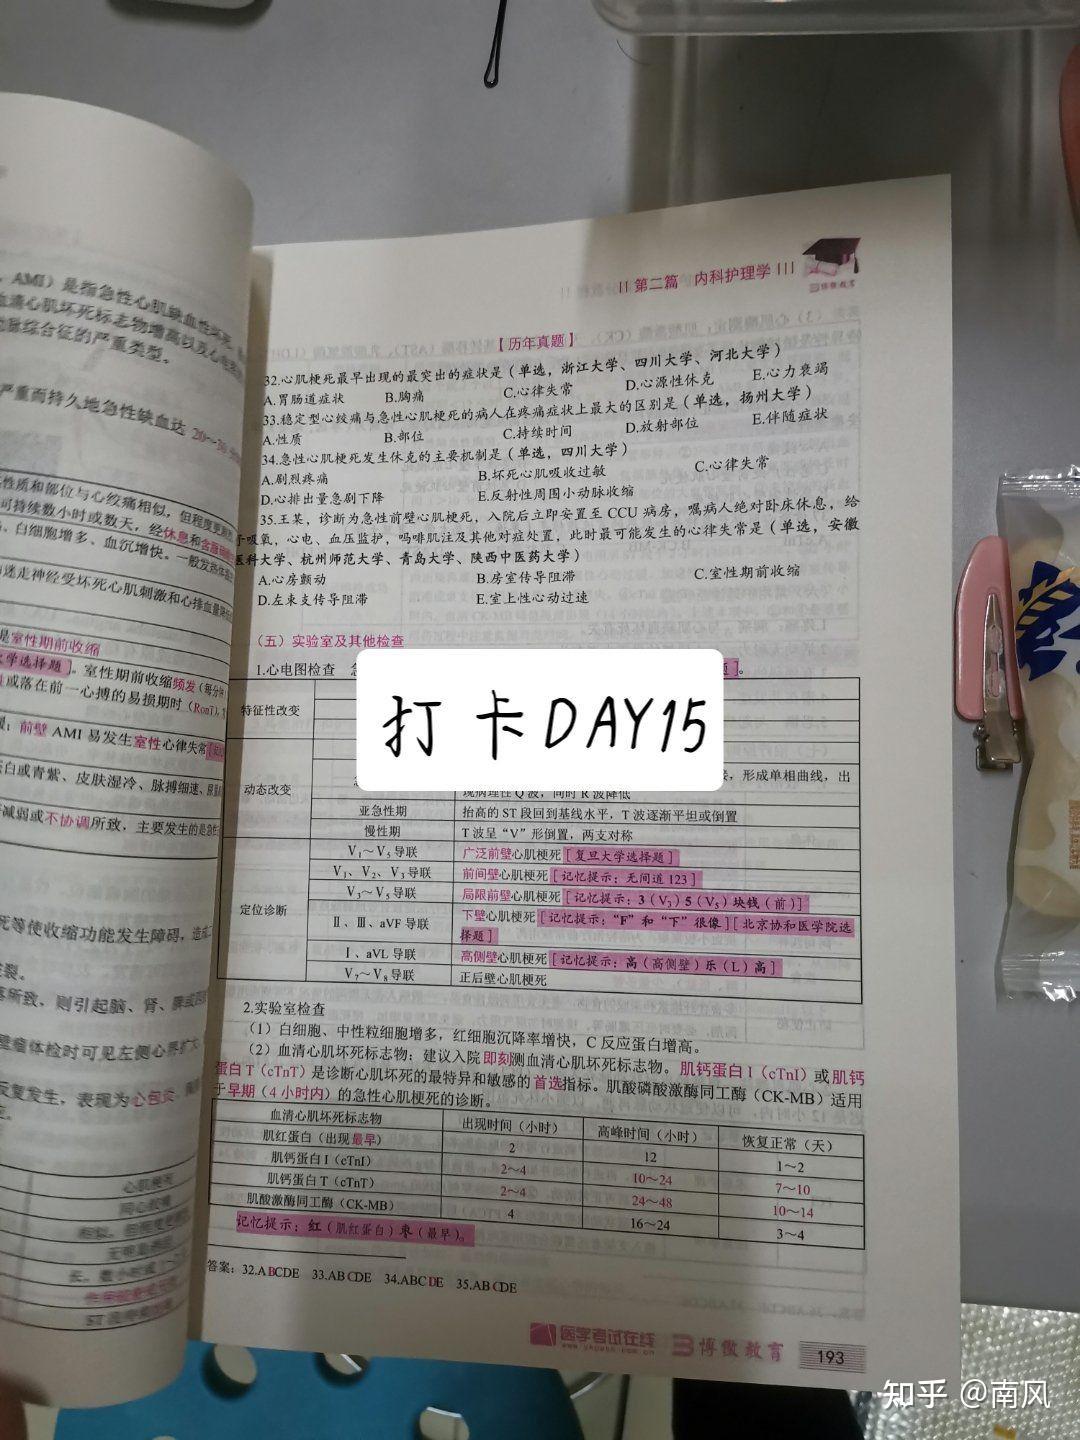 AMI）是指急性心肌缺血性坏死
血清心肌坏死标志物增高以及心电图
脉综合征的严重类型。
严重而持久地急性缺血达 20～30
性质和部位与心绞痛相似，但程度更剧烈
可持续数小时或数天，经休息和含服硝酸
、白细胞增多、血沉增快。一般发热体温
迷走神经受坏死心肌刺激和心排血量降低
是室性期前收缩
学选择题］。室性期前收缩频发（每分钟
或落在前一心搏的易损期时（RonT），
前壁 AMI 易发生室性心律失常
苍白或青紫、皮肤湿冷、脉搏细速、尿量
减弱或不协调所致，主要发生的是急性
死等使收缩功能发生障碍，造成二
裂。
落所致，则引起脑、肾、脾或四肢
壁瘤体检时可见左侧心界扩大
反复发生，表现为心包炎
III 第二篇 内科护理学 III
博傲教育
【历年真题】
32.心肌梗死最早出现的最突出的症状是（单选，浙江大学、四川大学、河北大学）
A.胃肠道症状 B.胸痛 C.心律失常 D.心源性休克 E.心力衰竭
33.稳定型心绞痛与急性心肌梗死的病人在疼痛症状上最大的区别是（单选，扬州大学）
A.性质 B.部位 C.持续时间 D.放射部位 E.伴随症状
34.急性心肌梗死发生休克的主要机制是（单选，四川大学）
A.剧烈疼痛 B.坏死心肌吸收过敏 C.心律失常
D.心排出量急剧下降 E.反射性周围小动脉收缩
35.王某，诊断为急性前壁心肌梗死，入院后立即安置至 CCU 病房，嘱病人绝对卧床休息，给
予吸氧，心电、血压监护，吗啡肌注及其他对症处置，此时最可能发生的心律失常是（单选，安徽
医科大学、杭州师范大学、青岛大学、陕西中医药大学）
A.心房颤动 B.房室传导阻滞 C.室性期前收缩
D.左束支传导阻滞 E.室上性心动过速
（五）实验室及其他检查
1.心电图检查 题］。
打卡DAY15
特征性改变
动态改变 ，形成单相曲线，出
现病理性 Q 波，同时 R 波降低
亚急性期 抬高的 ST 段回到基线水平，T 波逐渐平坦或倒置
慢性期 T 波呈“V”形倒置，两支对称
定位诊断
V₁～V₅导联 广泛前壁心肌梗死［复旦大学选择题］
V₁、V₂、V₃导联 前间壁心肌梗死［记忆提示：无间道 123］
V₃～V₅导联 局限前壁心肌梗死［记忆提示：3（V₃）5（V₅）块钱（前）］
Ⅱ、Ⅲ、aVF 导联 下壁心肌梗死［记忆提示：“F”和“下”很像］［北京协和医学院选
择题］
Ⅰ、aVL 导联 高侧壁心肌梗死［记忆提示：高（高侧壁）乐（L）高］
V₇～V₈导联 正后壁心肌梗死
2.实验室检查
（1）白细胞、中性粒细胞增多，红细胞沉降率增快，C 反应蛋白增高。
（2）血清心肌坏死标志物：建议入院即刻测血清心肌坏死标志物。肌钙蛋白 I（cTnI）或肌钙
蛋白 T（cTnT）是诊断心肌坏死的最特异和敏感的首选指标。肌酸磷酸激酶同工酶（CK-MB）适用
于早期（4 小时内）的急性心肌梗死的诊断。
血清心肌坏死标志物 出现时间（小时） 高峰时间（小时） 恢复正常（天）
肌红蛋白（出现最早） 2 12 1～2
肌钙蛋白 I（cTnI） 2～4 10～24 7～10
肌钙蛋白 T（cTnT） 2～4 24～48 10～14
肌酸激酶同工酶（CK-MB） 4 16～24 3～4
记忆提示：红（肌红蛋白）枣（最早）。
答案：32.ABCDE 33.ABCDE 34.ABCDE 35.ABCDE
医学考试在线
博傲教育
193
知乎 @南风